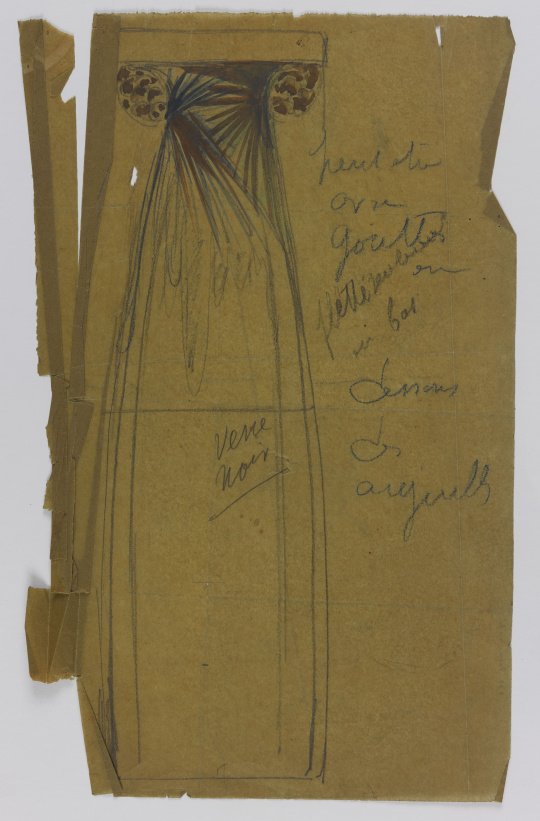 peut etre
avec
en
bas
dessous
des
aiguilles
verre
noir